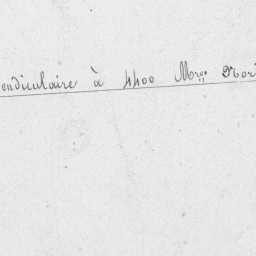 endiculaire à 4400 Mres Nor